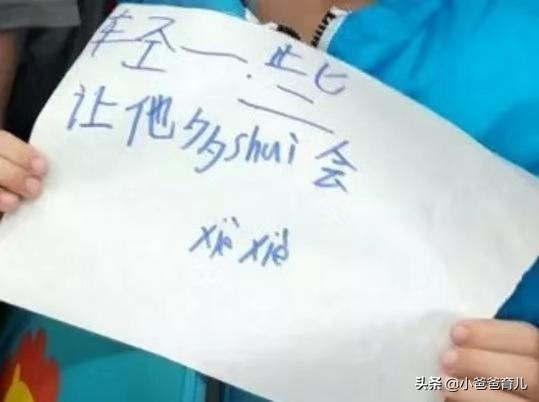 轻一些
让他多shui会
xiè xiè
头条 @小爸爸育儿